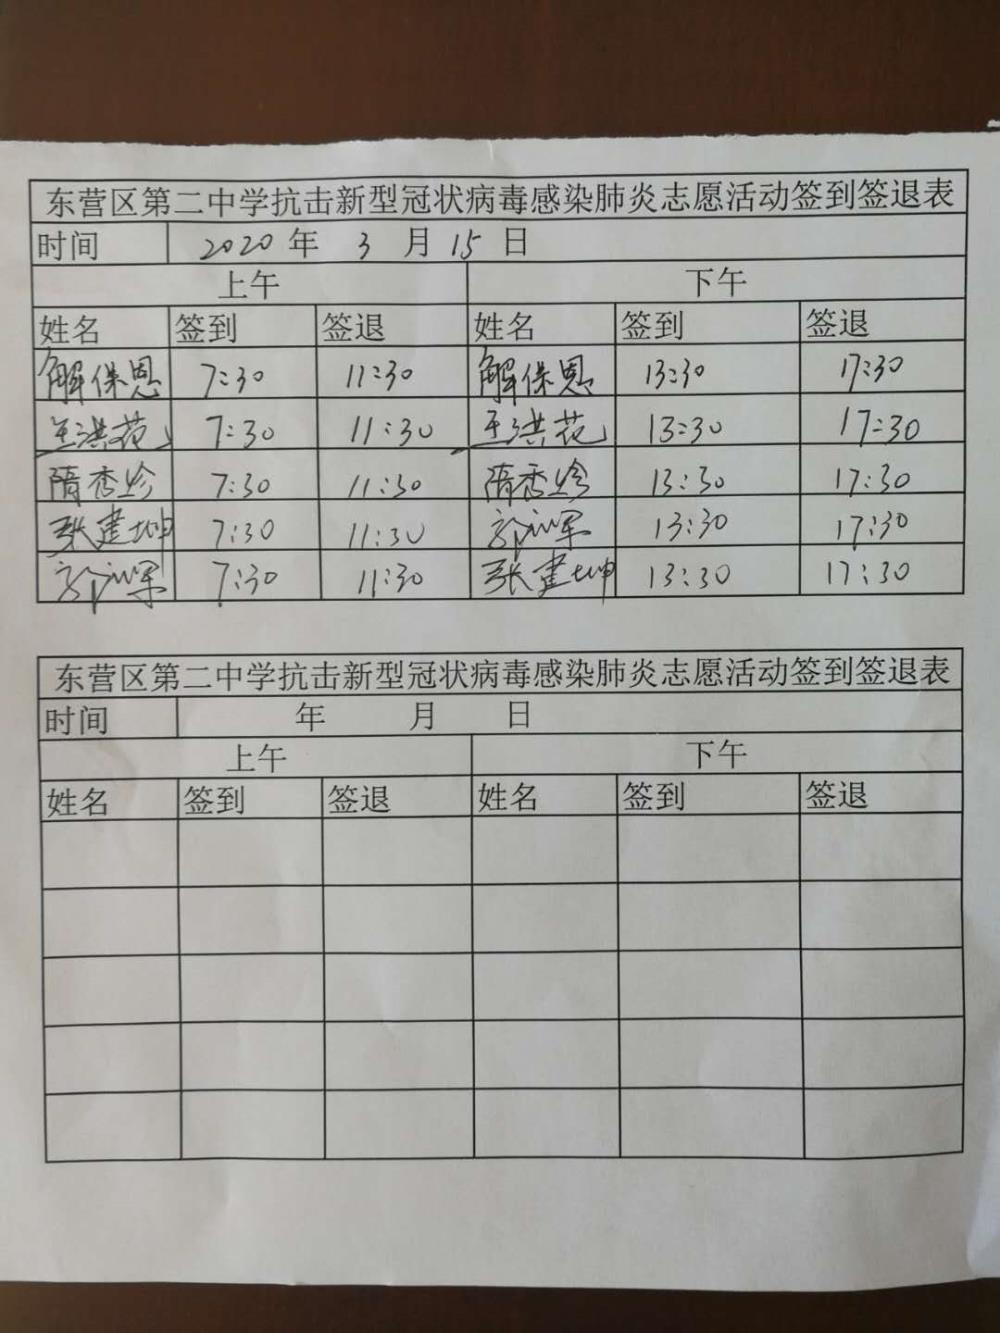 东营区第二中学抗击新型冠状病毒感染肺炎志愿活动签到签退表
时间 2020 年 3 月 15 日
上午 下午
姓名 签到 签退 姓名 签到 签退
解保恩 7:30 11:30 解保恩 13:30 17:30
王洪花 7:30 11:30 王洪花 13:30 17:30
隋秀珍 7:30 11:30 隋秀珍 13:30 17:30
张建坤 7:30 11:30 郭训军 13:30 17:30
郭训军 7:30 11:30 张建坤 13:30 17:30
东营区第二中学抗击新型冠状病毒感染肺炎志愿活动签到签退表
时间 年 月 日
上午 下午
姓名 签到 签退 姓名 签到 签退